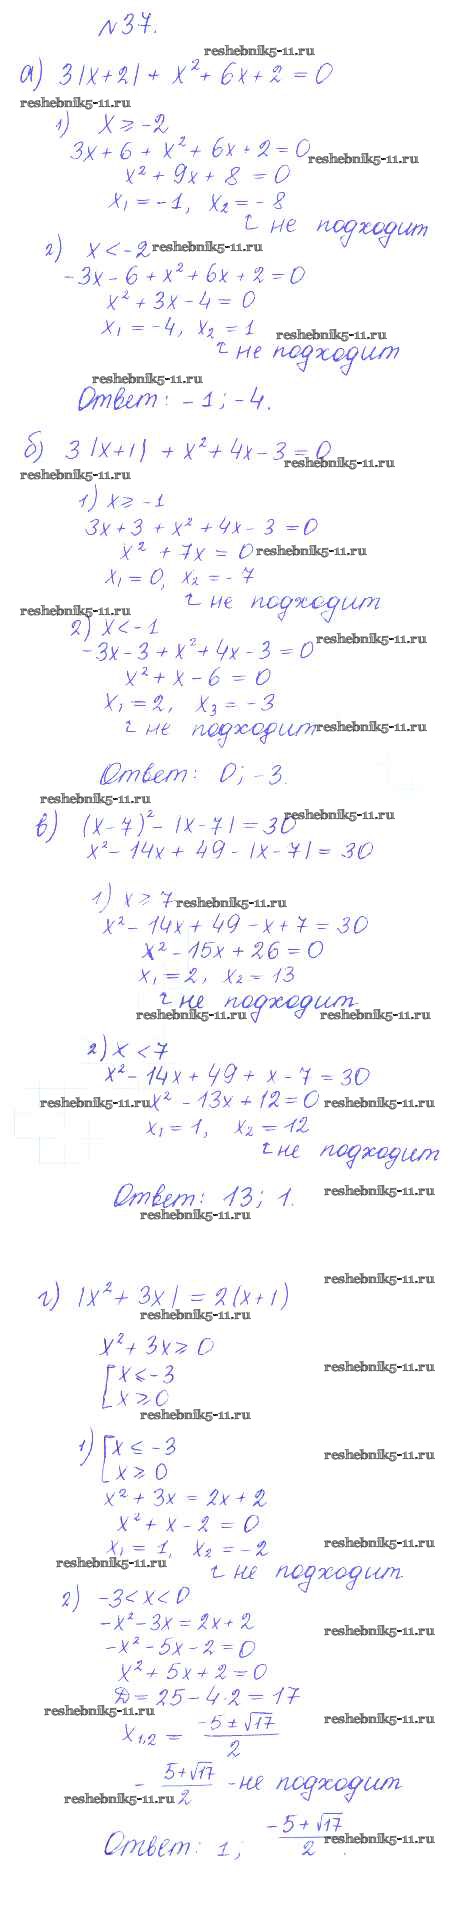 №37.
reshebnik5-11.ru
а) 3|x+2| + x² + 6x + 2 = 0
reshebnik5-11.ru
1) x ≥ -2
3x + 6 + x² + 6x + 2 = 0
reshebnik5-11.ru
x² + 9x + 8 = 0
x₁ = -1, x₂ = -8
не подходит
2) x < -2
reshebnik5-11.ru
-3x - 6 + x² + 6x + 2 = 0
x² + 3x - 4 = 0
x₁ = -4, x₂ = 1
reshebnik5-11.ru
не подходит
reshebnik5-11.ru
Ответ: -1; -4.
б) 3|x+1| + x² + 4x - 3 = 0
reshebnik5-11.ru
reshebnik5-11.ru
1) x ≥ -1
3x + 3 + x² + 4x - 3 = 0
x² + 7x = 0
reshebnik5-11.ru
x₁ = 0, x₂ = -7
не подходит
reshebnik5-11.ru
2) x < -1
reshebnik5-11.ru
-3x - 3 + x² + 4x - 3 = 0
x² + x - 6 = 0
x₁ = 2, x₃ = -3
не подходит
reshebnik5-11.ru
Ответ: 0; -3.
reshebnik5-11.ru
в) (x-7)² - |x-7| = 30
reshebnik5-11.ru
x² - 14x + 49 - |x-7| = 30
1) x ≥ 7
reshebnik5-11.ru
x² - 14x + 49 - x + 7 = 30
x² - 15x + 26 = 0
x₁ = 2, x₂ = 13
не подходит
reshebnik5-11.ru reshebnik5-11.ru
2) x < 7
x² - 14x + 49 + x - 7 = 30
reshebnik5-11.ru
x² - 13x + 12 = 0
reshebnik5-11.ru
x₁ = 1, x₂ = 12
не подходит
reshebnik5-11.ru
Ответ: 13; 1.
reshebnik5-11.ru
reshebnik5-11.ru
г) |x² + 3x| = 2(x+1)
reshebnik5-11.ru
x² + 3x ≥ 0
reshebnik5-11.ru
[x ≤ -3
x ≥ 0
reshebnik5-11.ru
1) [x ≤ -3
reshebnik5-11.ru
x ≥ 0
x² + 3x = 2x + 2
x² + x - 2 = 0
reshebnik5-11.ru
x₁ = 1, x₂ = -2
reshebnik5-11.ru
не подходит
2) -3 < x < 0
-x² - 3x = 2x + 2
reshebnik5-11.ru
-x² - 5x - 2 = 0
x² + 5x + 2 = 0
Д = 25 - 4·2 = 17
reshebnik5-11.ru
reshebnik5-11.ru
x₁,₂ = (-5 ± √17)/2
- (5+√17)/2 - не подходит
reshebnik5-11.ru
Ответ: 1; (-5+√17)/2.
reshebnik5-11.ru